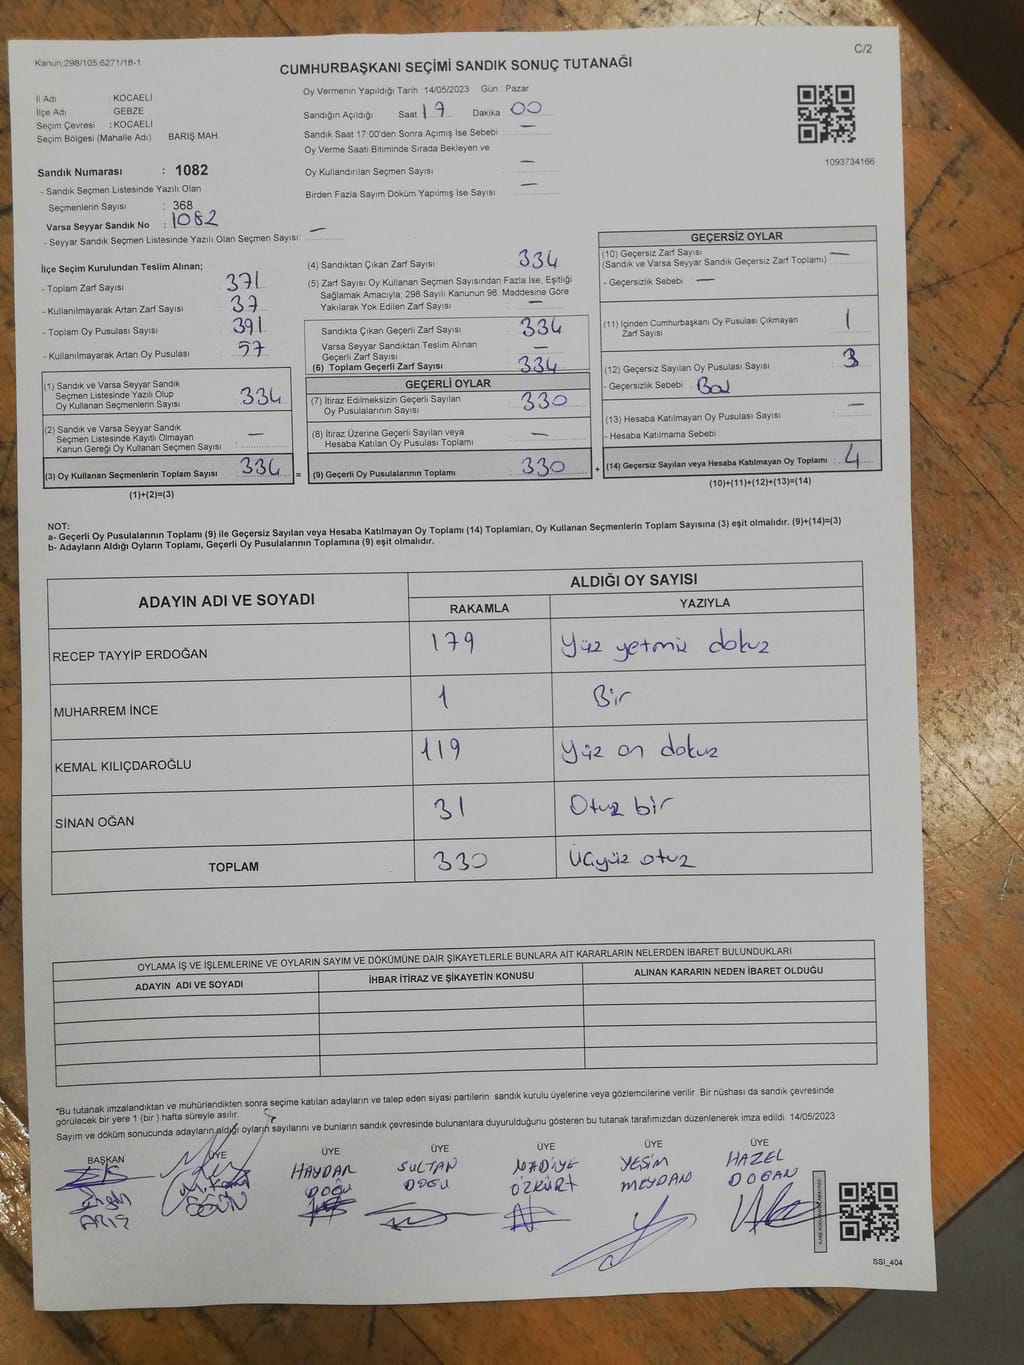 Kanun:298/105;6271/18-1
C/2
CUMHURBAŞKANI SEÇİMİ SANDIK SONUÇ TUTANAĞI
İl Adı : KOCAELİ
İlçe Adı : GEBZE
Seçim Çevresi : KOCAELİ
Seçim Bölgesi (Mahalle Adı) : BARIŞ MAH.
Oy Vermenin Yapıldığı Tarih : 14/05/2023 Gün : Pazar
Sandığın Açıldığı Saat 17 Dakika 00
Sandık Saat 17:00'den Sonra Açımış İse Sebebi : —
Oy Verme Saati Bitiminde Sırada Bekleyen ve
Oy Kullandırılan Seçmen Sayısı : —
Birden Fazla Sayım Döküm Yapılmış İse Sayısı : —
1093734166
Sandık Numarası : 1082
- Sandık Seçmen Listesinde Yazılı Olan
Seçmenlerin Sayısı : 368
Varsa Seyyar Sandık No : 1082
- Seyyar Sandık Seçmen Listesinde Yazılı Olan Seçmen Sayısı: —
İlçe Seçim Kurulundan Teslim Alınan;
- Toplam Zarf Sayısı : 371
- Kullanılmayarak Artan Zarf Sayısı : 37
- Toplam Oy Pusulası Sayısı : 391
- Kullanılmayarak Artan Oy Pusulası : 57
(1) Sandık ve Varsa Seyyar Sandık
Seçmen Listesinde Yazılı Olup
Oy Kullanan Seçmenlerin Sayısı : 334
(2) Sandık ve Varsa Seyyar Sandık
Seçmen Listesinde Kayıtlı Olmayan
Kanun Gereği Oy Kullanan Seçmen Sayısı : —
(3) Oy Kullanan Seçmenlerin Toplam Sayısı : 334 =
(1)+(2)=(3)
(4) Sandıktan Çıkan Zarf Sayısı : 334
(5) Zarf Sayısı Oy Kullanan Seçmen Sayısından Fazla İse, Eşitliği
Sağlamak Amacıyla; 298 Sayılı Kanunun 98. Maddesine Göre
Yakılarak Yok Edilen Zarf Sayısı : —
Sandıkta Çıkan Geçerli Zarf Sayısı : 334
Varsa Seyyar Sandıktan Teslim Alınan
Geçerli Zarf Sayısı : —
(6) Toplam Geçerli Zarf Sayısı : 334
GEÇERLİ OYLAR
(7) İtiraz Edilmeksizin Geçerli Sayılan
Oy Pusulalarının Sayısı : 330
(8) İtiraz Üzerine Geçerli Sayılan veya
Hesaba Katılan Oy Pusulası Toplamı : —
(9) Geçerli Oy Pusulalarının Toplamı : 330 +
GEÇERSİZ OYLAR
(10) Geçersiz Zarf Sayısı : —
(Sandık ve Varsa Seyyar Sandık Geçersiz Zarf Toplamı)
- Geçersizlik Sebebi : —
(11) İçinden Cumhurbaşkanı Oy Pusulası Çıkmayan
Zarf Sayısı : 1
(12) Geçersiz Sayılan Oy Pusulası Sayısı : 3
- Geçersizlik Sebebi :
(13) Hesaba Katılmayan Oy Pusulası Sayısı : —
- Hesaba Katılmama Sebebi :
(14) Geçersiz Sayılan veya Hesaba Katılmayan Oy Toplamı : 4
(10)+(11)+(12)+(13)=(14)
NOT:
a- Geçerli Oy Pusulalarının Toplamı (9) ile Geçersiz Sayılan veya Hesaba Katılmayan Oy Toplamı (14) Toplamları, Oy Kullanan Seçmenlerin Toplam Sayısına (3) eşit olmalıdır. (9)+(14)=(3)
b- Adayların Aldığı Oyların Toplamı, Geçerli Oy Pusulalarının Toplamına (9) eşit olmalıdır.
ADAYIN ADI VE SOYADI ALDIĞI OY SAYISI
RAKAMLA YAZIYLA
RECEP TAYYİP ERDOĞAN 179 Yüz yetmiş dokuz
MUHARREM İNCE 1 Bir
KEMAL KILIÇDAROĞLU 119 Yüz on dokuz
SİNAN OĞAN 31 Otuz bir
TOPLAM 330 Üçyüz otuz
OYLAMA İŞ VE İŞLEMLERİNE VE OYLARIN SAYIM VE DÖKÜMÜNE DAİR ŞİKAYETLERLE BUNLARA AİT KARARLARIN NELERDEN İBARET BULUNDUKLARI
ADAYIN ADI VE SOYADI İHBAR İTİRAZ VE ŞİKAYETİN KONUSU ALINAN KARARIN NEDEN İBARET OLDUĞU
*Bu tutanak imzalandıktan ve mühürlendikten sonra seçime katılan adayların ve talep eden siyasi partilerin sandık kurulu üyelerine veya gözlemcilerine verilir. Bir nüshası da sandık çevresinde
görülecek bir yere 1 (bir ) hafta süreyle asılır.
Sayım ve döküm sonucunda adayların aldığı oyların sayılarını ve bunların sandık çevresinde bulunanlara duyurulduğunu gösteren bu tutanak tarafımızdan düzenlenerek imza edildi. 14/05/2023
BAŞKAN ÜYE ÜYE ÜYE ÜYE ÜYE ÜYE
HAYDAR SULTAN NADİYE YEŞİM HAZEL
ARIŞ DOĞU DOĞU ÖZKURT MEYDAN DOĞAN
SSI_404